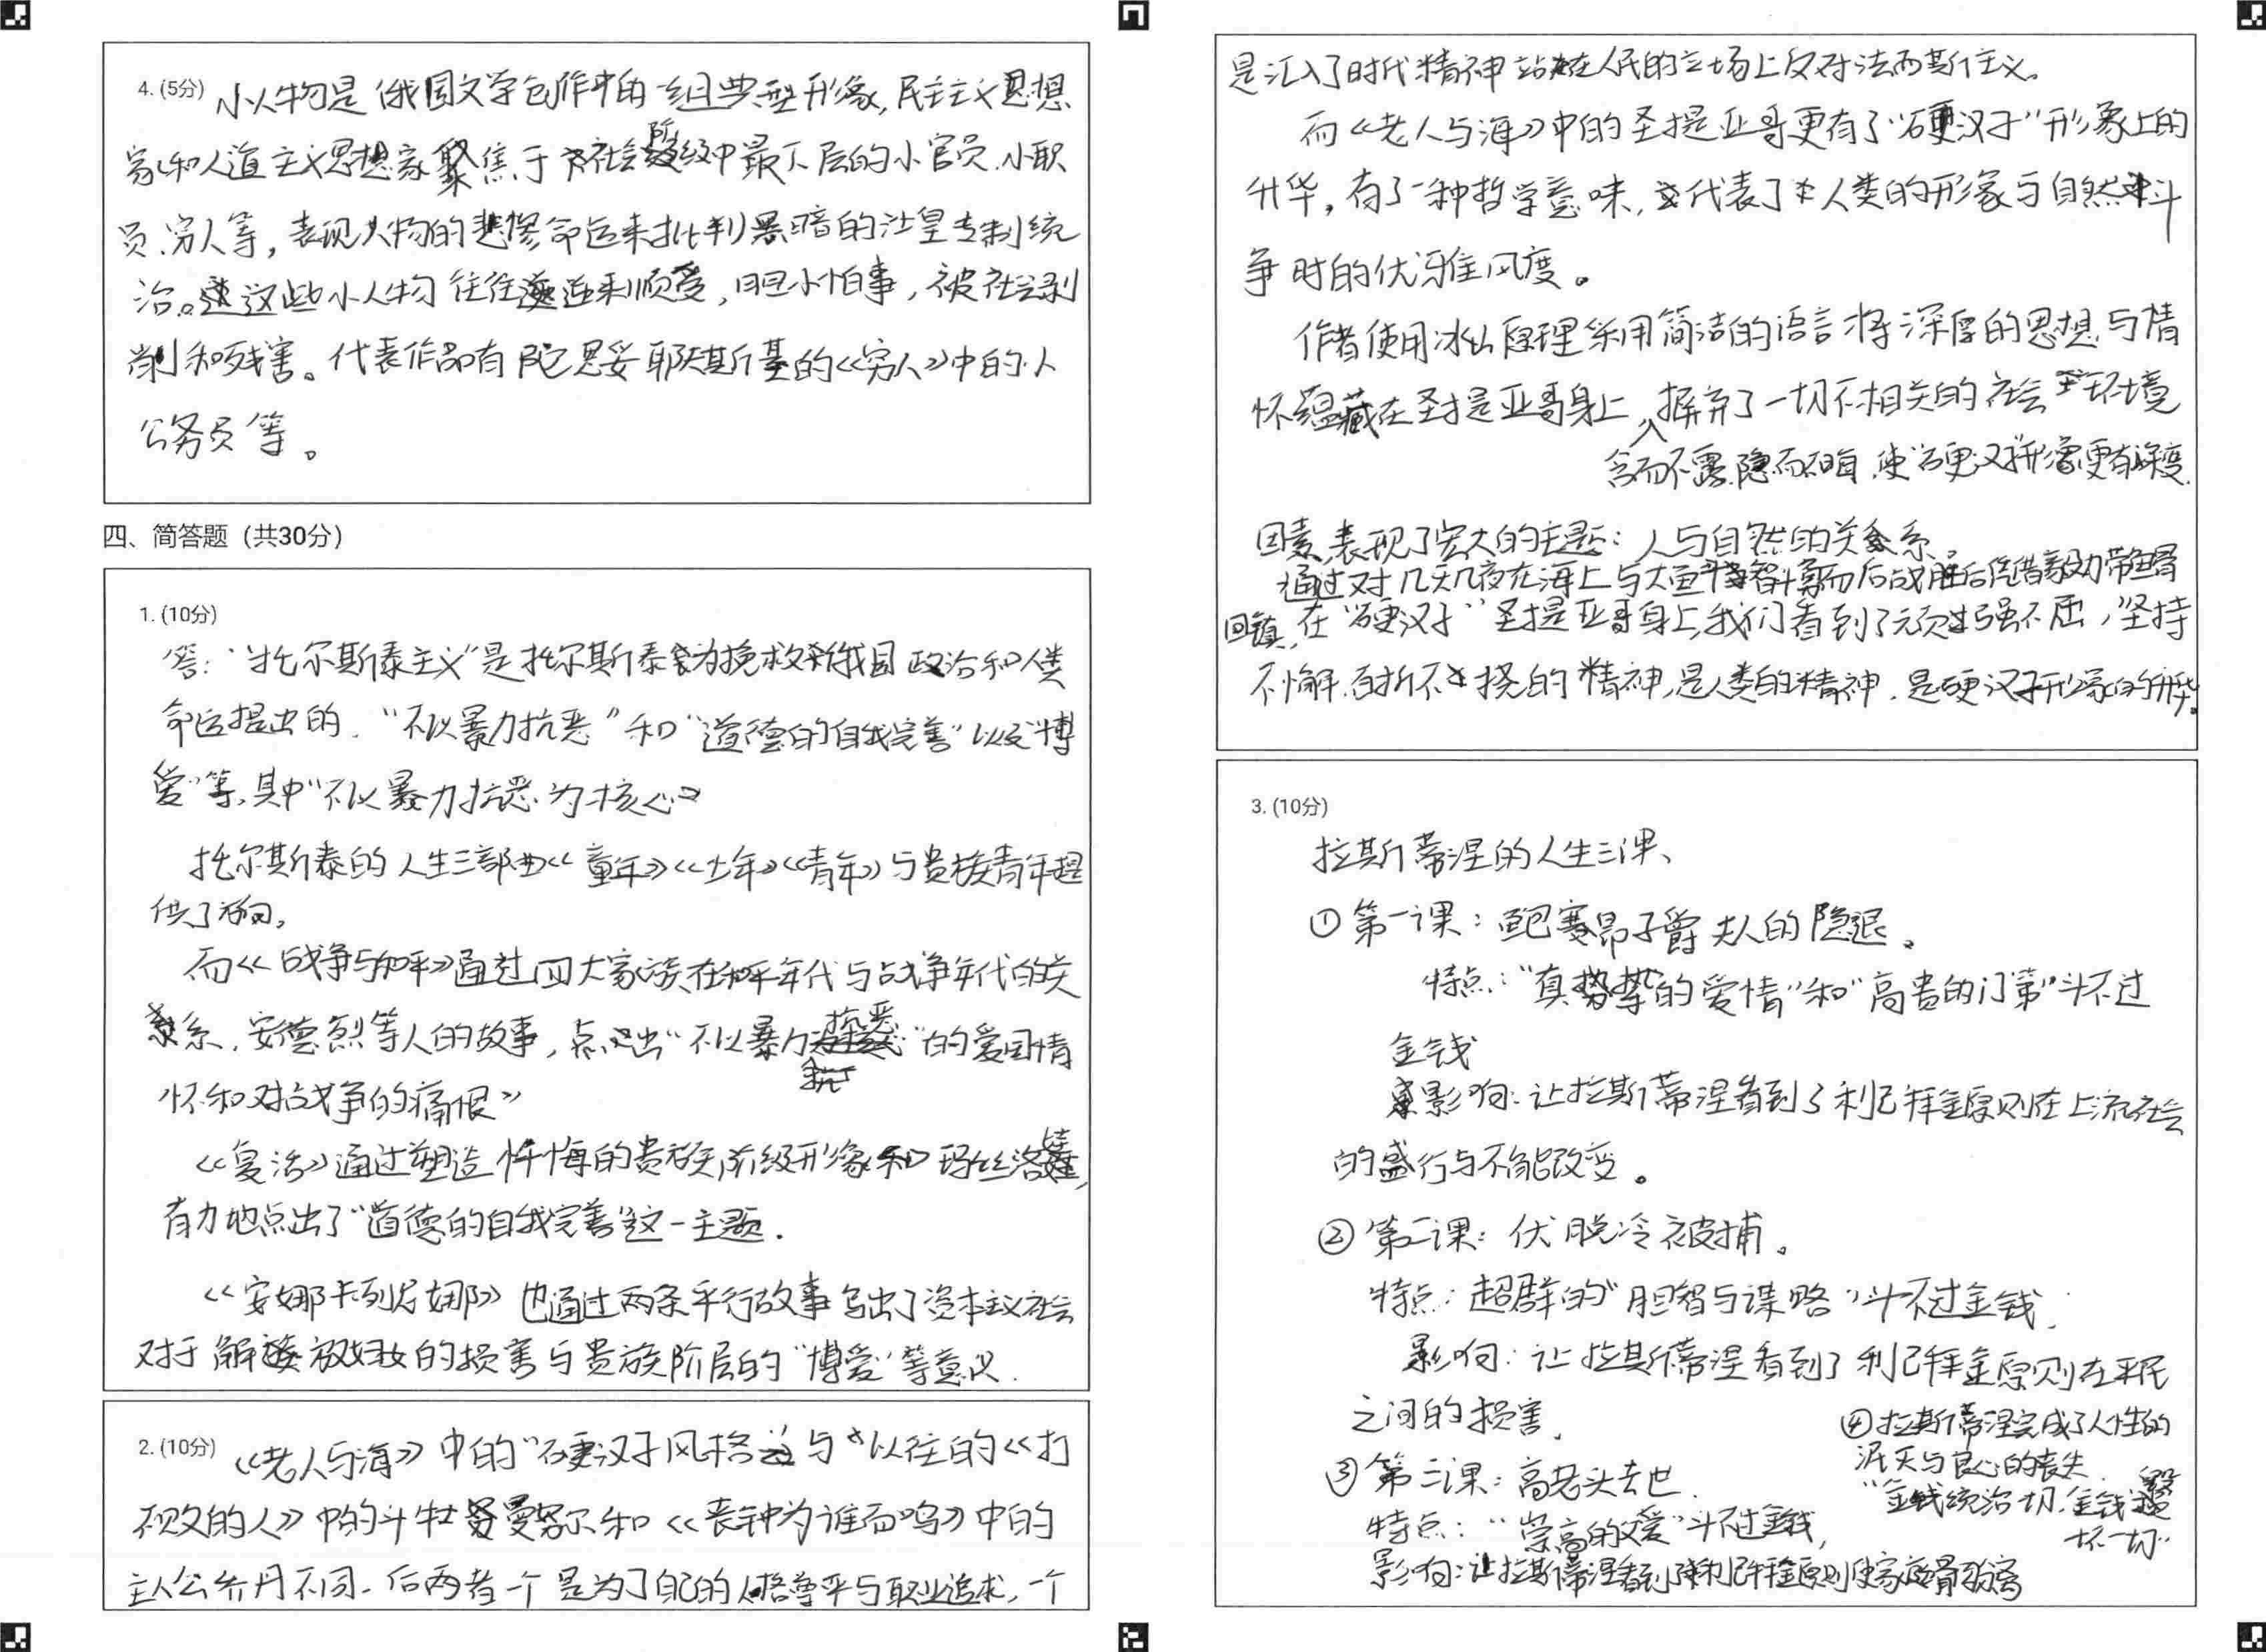 4. (5分) 小人物是俄国文学创作中的一组典型形象,民主主义思想
家和人道主义思想家聚焦于社会阶级中最下层的小官员、小职
员、穷人等,表现人物的悲惨命运来批判黑暗的沙皇专制统
治。这些小人物往往逆来顺受,胆小怕事,被社会剥
削和残害。代表作品有陀思妥耶夫斯基的《穷人》中的小
公务员等。
四、简答题(共30分)
1. (10分)
答:“托尔斯泰主义”是托尔斯泰为挽救俄国政治和人类
命运提出的,“不以暴力抗恶”和“道德的自我完善”以及“博
爱”等,其中“不以暴力抗恶”为核心。
托尔斯泰的人生三部曲《童年》《少年》《青年》与贵族青年提
供了方向。
而《战争与和平》通过四大家族在和平年代与战争年代的关
系,安德烈等人的故事,点出“不以暴力抗恶”的爱国情
怀和对战争的痛恨。
《复活》通过塑造忏悔的贵族阶级形象和玛丝洛娃,
有力地点出了“道德的自我完善”这一主题.
《安娜卡列尼娜》也通过两条平行故事写出了资本主义社会
对于解放妇女的损害与贵族阶层的“博爱”等意义.
2. (10分) 《老人与海》中的“硬汉子风格与以往的《打
不败的人》中的斗牛士曼努尔和《丧钟为谁而鸣》中的
主人公乔丹不同。后两者一个是为了自己的人格尊严与职业追求,一个
是汇入了时代精神站在人民的立场上反对法西斯主义。
而《老人与海》中的圣提亚哥更有了“硬汉子”形象上的
升华,有了一种哲学意味,代表了人类的形象与自然斗
争时的优雅风度。
作者使用冰山原理采用简洁的语言将深厚的思想与情
怀蕴藏在圣提亚哥身上,摒弃了一切不相关的社会环境
含而不露,隐而不晦,使“硬汉”形象更有深度.
因素,表现了宏大的主题:人与自然的关系。
通过对几天几夜在海上与大鱼而后战胜后凭借毅力带鱼骨
回镇,在“硬汉子”圣提亚哥身上,我们看到了顽强不屈,坚持
不懈,百折不挠的精神,是人类的精神,是硬汉子形象的升华。
3. (10分)
拉斯蒂涅的人生三课、
① 第一课:鲍赛昂子爵夫人的隐退。
特点:“真挚的爱情”和“高贵的门第”斗不过
金钱
影响:让拉斯蒂涅看到了利己拜金原则在上流社会
的盛行与不能改变。
② 第二课:伏脱冷被捕。
特点:超群的“胆智与谋略”斗不过金钱.
影响:让拉斯蒂涅看到了利己拜金原则在平民
之间的损害.
③ 第三课:高老头去世.
特点:“崇高的父爱”斗不过金钱,
影响:让拉斯蒂涅看到了利己拜金原则使家庭骨肉
④ 拉斯蒂涅完成了人性的
泯灭与良心的丧失.
“金钱统治一切,金钱毁
坏一切”